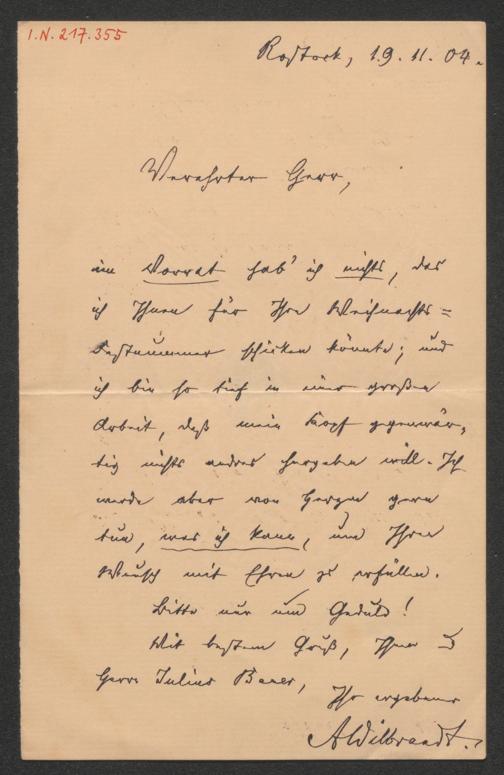 I.N. 217.355
Rostock, 19.11.04.
Verehrter Herr,
im Vorrat hab' ich nichts, das
ich Ihnen für Ihre Weihnachts=
Festnummer schicken könnte; und
ich bin so tief in einer großen
Arbeit, daß mein Kopf gegenwär=
tig nichts andres hergeben will. Ich
werde aber von Herzen gern
tun, was ich kann, um Ihren
Wunsch mit Ehren zu erfüllen.
Bitte nur um Geduld!
Mit bestem Gruß,
Herrn Julius Bauer,
Ihr ergebener
AWilbrandt.